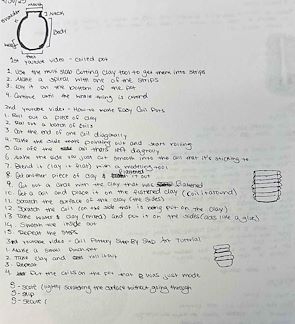 Mouth
Neck
shoulder
Body
foot
1st youtube video - coiled pot
1. Use the mud slab cutting clay tool to get them into strips
2. Make a spiral with one of the strips
3. Lay it on the bottom of the pot
4. Continue until the whole thing is coiled
2nd youtube video - How to make Easy Coil Pots
1. Roll out a piece of clay
2. Roll out a bunch of coils
3. Cut the end of one coil diagonally
4. Take the side more pointing out and start
5. Cut off the coil that's left diagonally
6. Make the side you just cut smooth into the coil that it's sticking to
7. Blend it (clay is flat) with a modeling tool
8. Get another piece of clay & flattened it out
9. Cut out a circle with the clay that was flattened
10. Get a coil and place it on the flattened clay (coil it around)
11. Scratch the surface of the clay (the sides)
12. Scratch the coil (on the side that is being put on the clay)
13. Take water & clay (mixed) and put it on the sides (acts like a glue)
14. Smooth the inside out
15. Repeat the steps
3rd youtube video - Coil Pottery Step By Step for Tutorial
1. Make a small
2. Take clay and roll it out
3. Repeat
4. Put the coils on the pot that was just made
S - Score (lightly scratching the surface without going through
S - slip
S -